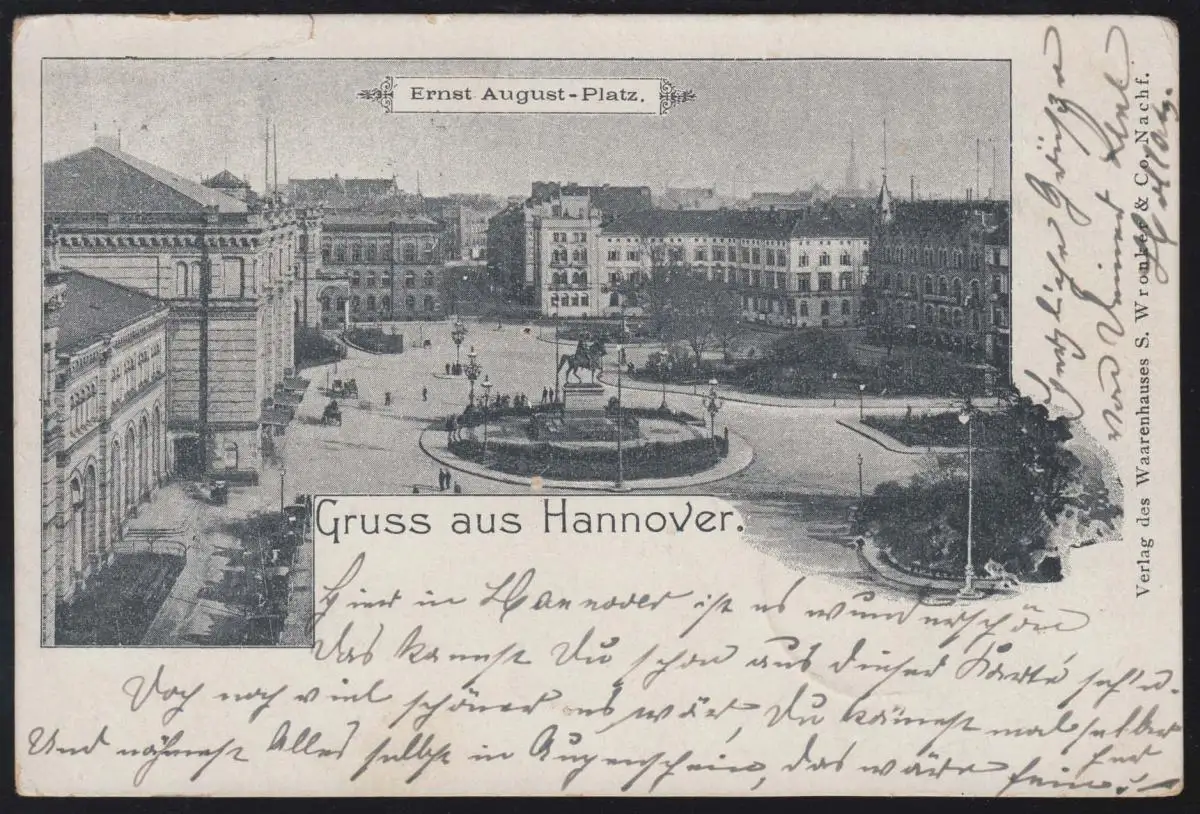 Ernst August-Platz.
Gruss aus Hannover.
Hier in Hannover ist es wunderschön
Das kannst Du schon aus dieser Karte seh'n.
Doch noch viel schöner es wär, Du kämest mal selber her
Und nähmest Alles selbst in Augenschein, das wäre fein!
Herzliche Grüße
von Deiner
Verlag des Waarenhauses S. Wronker & Co. Nachf.